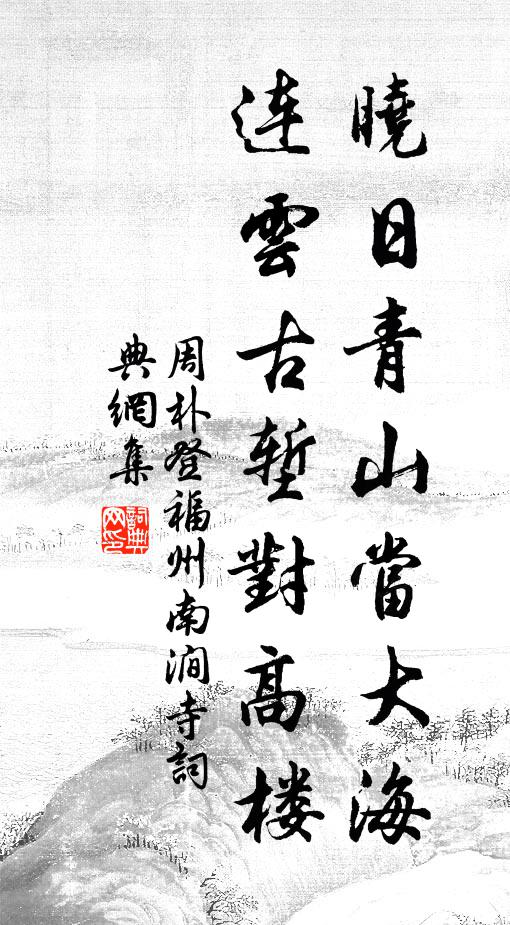 曉日青山當大海
連雲古塹對高楼
周朴登福州南澗寺詞
典網集
詞典
网印